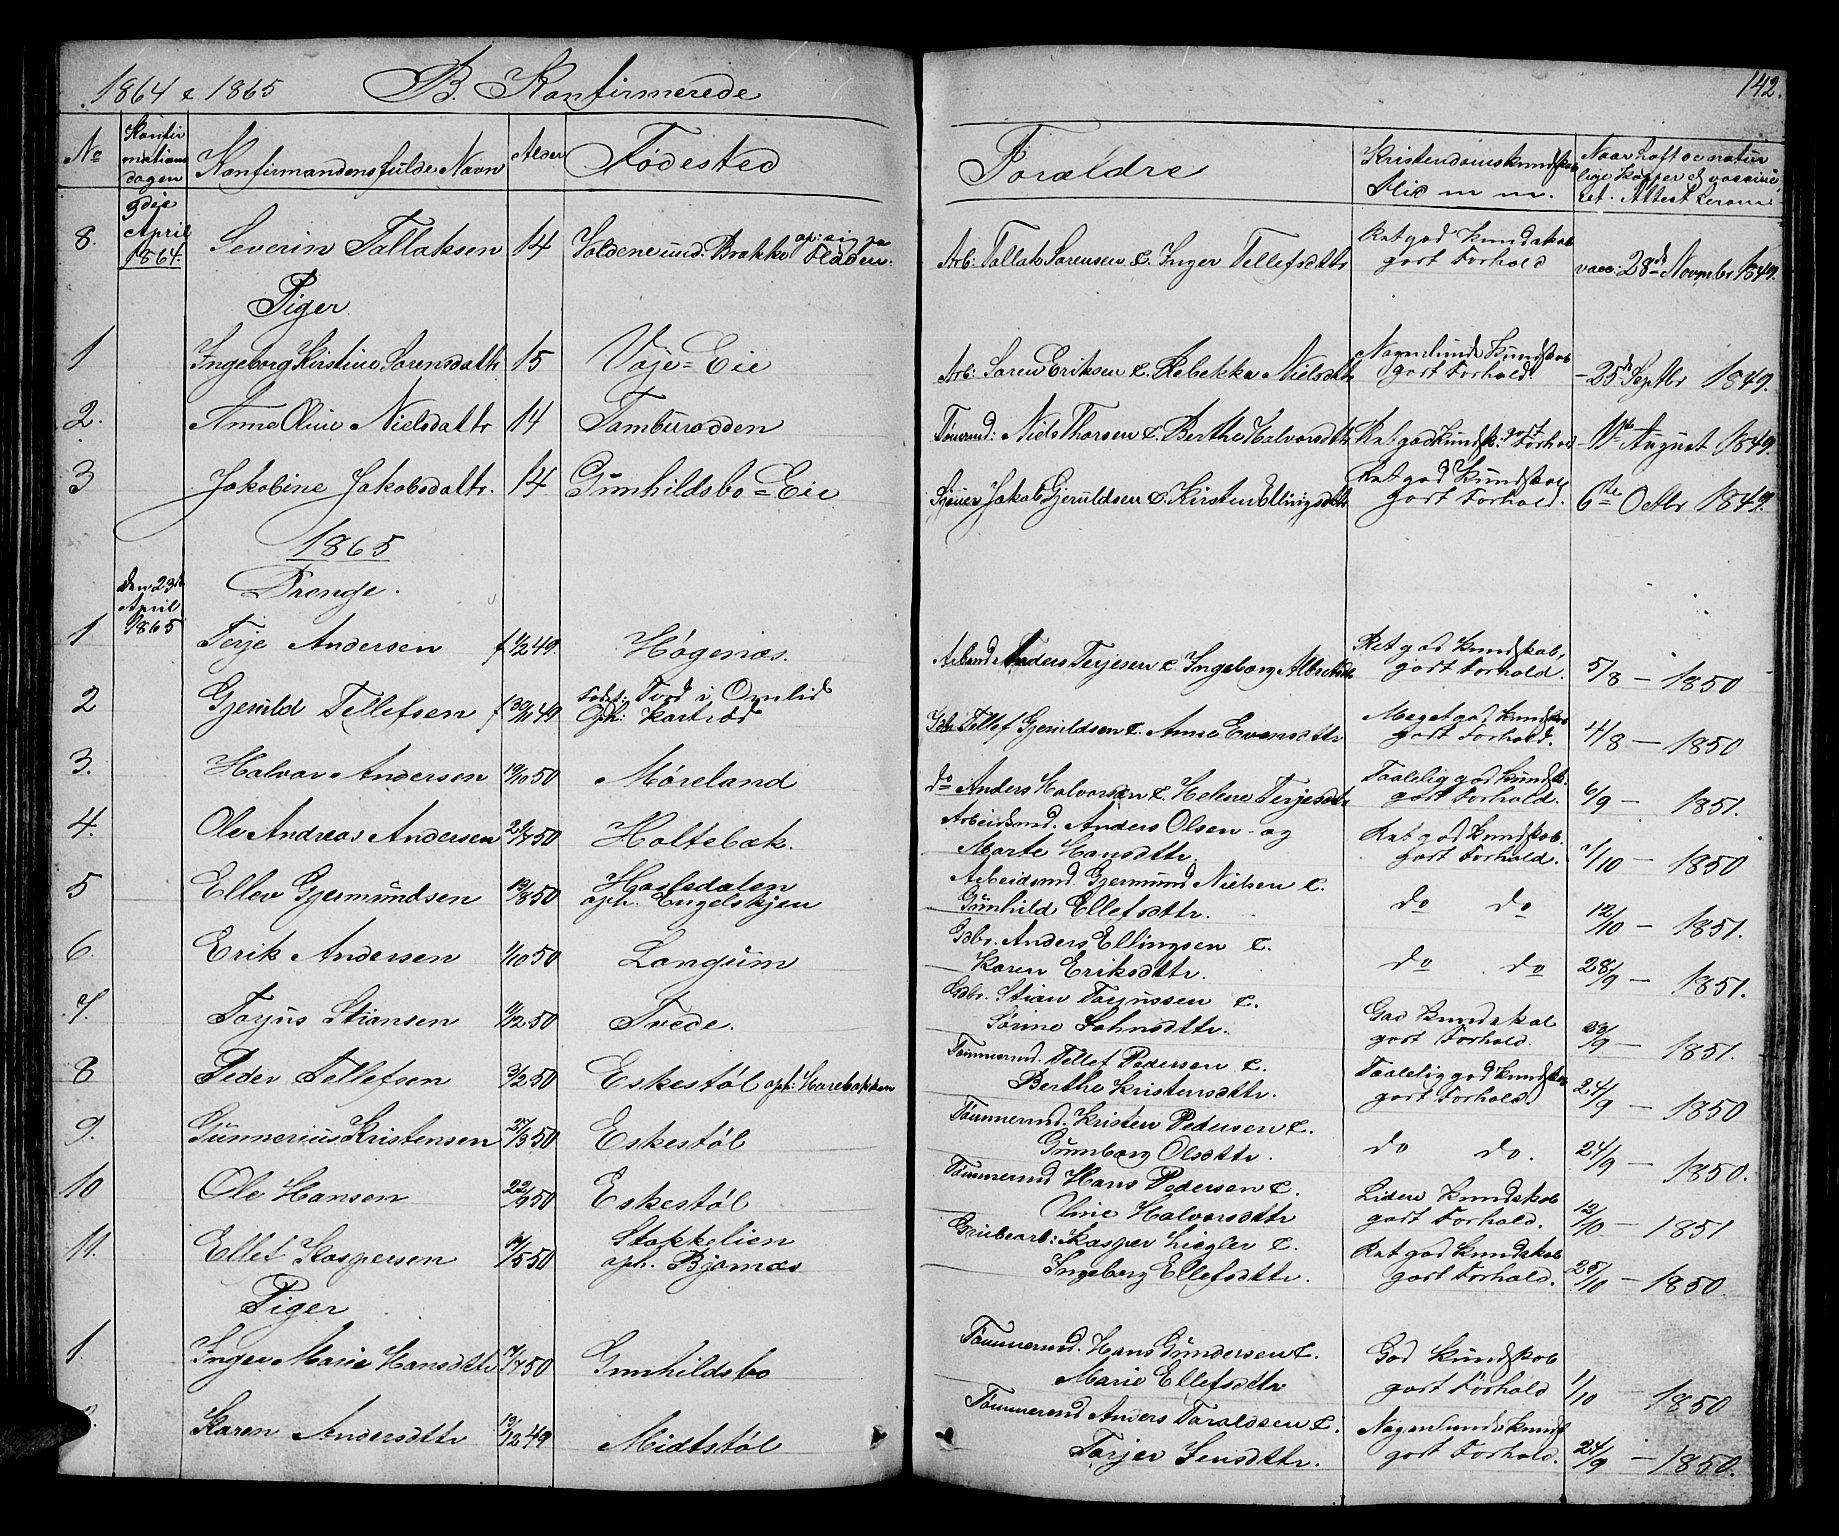 1864 & 1865 B. Konfirmerede
142.
No Konfirmationsdagen Konfirmandens fulde Navn Alder Fødested Forældre Kristendomskundskab Flid m m. Naar haft de naturlige Kopper el. vaccineret. Attest herom
8. 3die April 1864. Severin Tallaksen 14 Soldene und. Brække op: sig pa Fladen. Arb: Tallak Sørensen & Inger Tellefsdttr Ret god Kundskab godt Forhold vacc: 28de Novembr 1849.
Piger
1 Ingeborg Kirstine Sørensdattr 15 Voje-Eie Arb: Søren Eriksen & Rebekka Nielsdttr Nogenlunde Kundskab godt Forhold. - 25de Septbr 1849.
2. Anne Oline Nielsdattr 14 Tamburodden Tømmd: Niels Thorsen & Berthe Halvorsdttr Ret god Kundsk: godt Forhold 11te August 1849.
3 Jakobine Jakobsdattr. 14 Gunhildsbo-Eie Jakob Gjeruldsen & Kirsten Ellingsdttr Ret god Kundskab godt Forhold. 6te Octbr 1849.
1865
Drenge.
1 den 23de April 1865 Terje Andersen f 49. Høgenæs. Arbmd Anders Terjesen & Ingeborg Albretsdttr Ret god Kundskab, godt Forhold. 5/8 - 1850
2 Gjeruld Tellefsen f 30/11 49 Født: Tvod i Omlid Oph: Kartrød Gbr Tellef Gjeruldsen & Anne Evensdttr Meget god Kundskab godt Forhold. 4/8 - 1850
3. Halvor Andersen 19/10 50 Møreland do Anders Halvorsen & Helene Terjesdttr Taalelig god Kundsk. godt Forhold. 6/9 - 1851.
4. Ole Andreas Andersen 50 Holtebæk. Arbeidsmd. Anders Olsen og Marte Hansdttr. Ret god Kundskab godt Forhold. /10 - 1850
5 Ellev Gjermundsen 19/8 50 Hasledalen oph. Engelskjen Arbeidsmd. Gjermund Nielsen & Gunhild Ellefsdttr. do do 12/10 - 1851.
6. Erik Andersen 1/10 50 Longum Gdbr. Anders Ellingsen & Karen Eriksdttr. do do 28/9 - 1851.
7. Torjus Stiansen 50 Tvede. Gdbr. Stian Torjussen & Sørine Johnsdttr. God Kundskab godt Forhold. 23/9 - 1851.
8 Peder Tellefsen 3/2 50 Eskestøl oph: Harebakken Tømmermd. Tellef Pedersen & Berthe Kristensdttr. Taalelig god Kundskab godt Forhold. 24/9 - 1850
9. Gunnerius Kristensen 27/3 50 Eskestøl Tømmermd. Kristen Pedersen & Gunborg Olsdttr. do do. 24/9 - 1850.
10 Ole Hansen 22/9 50 Eskestøl Tømmermd Hans Pedersen & Oline Halvorsdttr Liden Kundskab godt Forhold. 12/10 - 1851
11. Ellef Kaspersen /5 50 Stokkelien oph. Bjørnæs Grubearb: Kasper Ziegler & Ingeborg Ellefsdttr. Ret god Kundskab godt Forhold. 25/10 - 1850.
Piger
1. Inger Marie Hansdttr /7 50 Gunhildsbo Tømmermd. Hans Gundersen & Marie Ellefsdttr God Kundskab godt Forhold 1/10 - 1850
Karen Andersdttr 19/12 49 Midtstøl Tømmermd Anders Taraldsen & Torjer Jensdttr. Nogenlunde Kundsk godt Forhold. 24/9 - 1850.